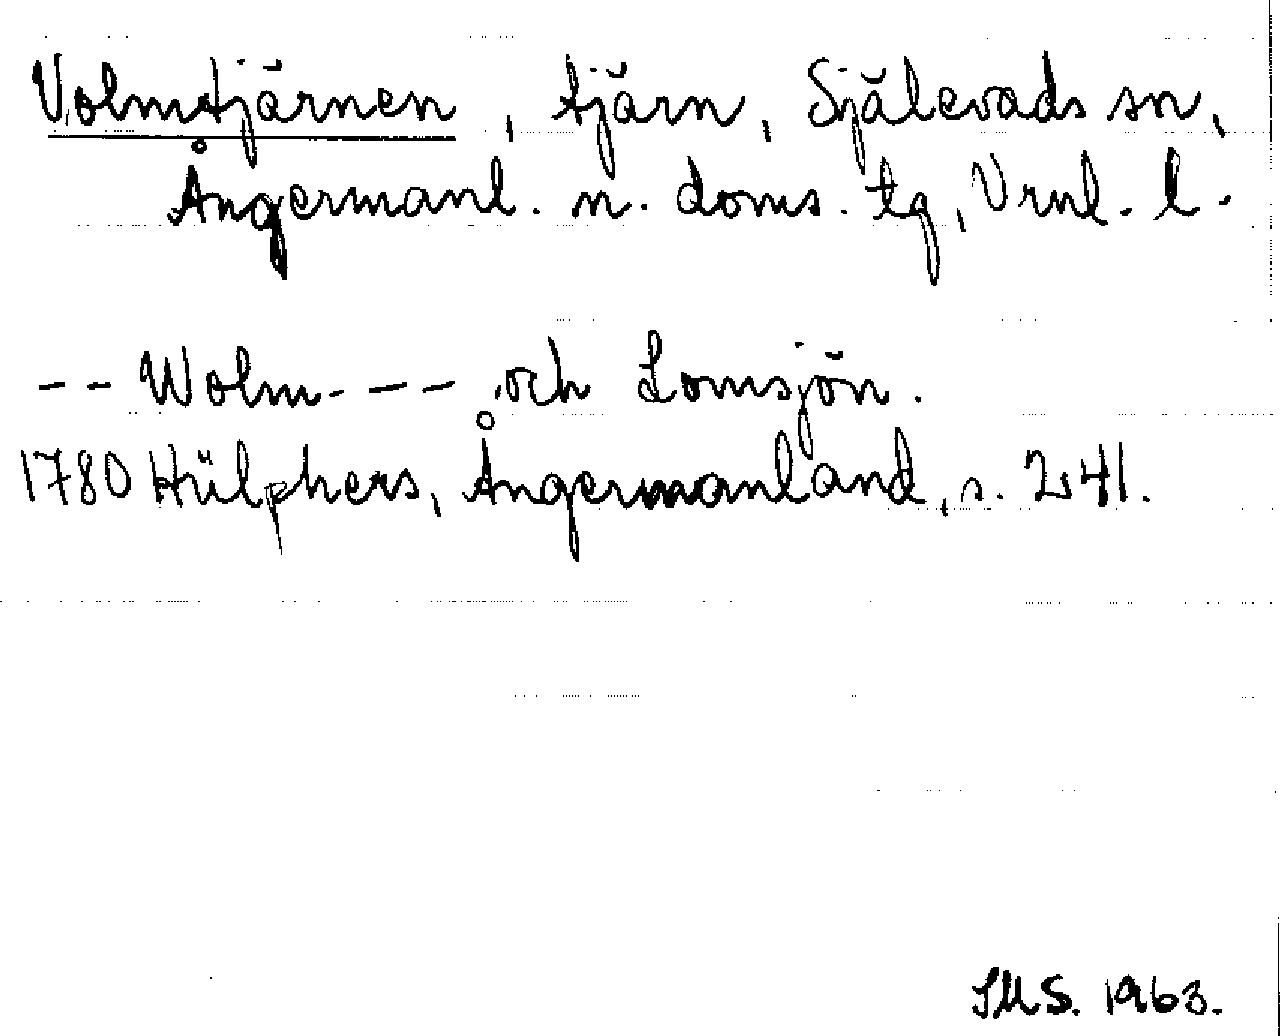 Volmtjärnen, tjärn, Själevads sn,
Ångermanl. n. doms. tg, Vrnl. l.
-- Wolm- -- och Lomsjön.
1780 Hülphers, Ångermanland, s. 241.
SMS. 1963.